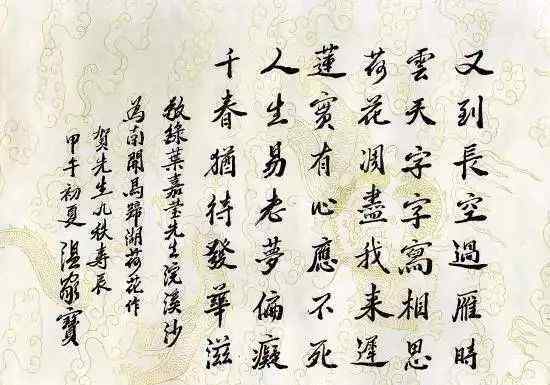 又到長空過雁時
雲天字字寫相思
荷花凋盡我來遲
蓮實有心應不死
人生易老夢偏癡
千春猶待發華滋
敬錄葉嘉瑩先生浣溪沙
為南開馬蹄湖荷花作
賀先生九秩壽辰
甲午初夏 温家寶